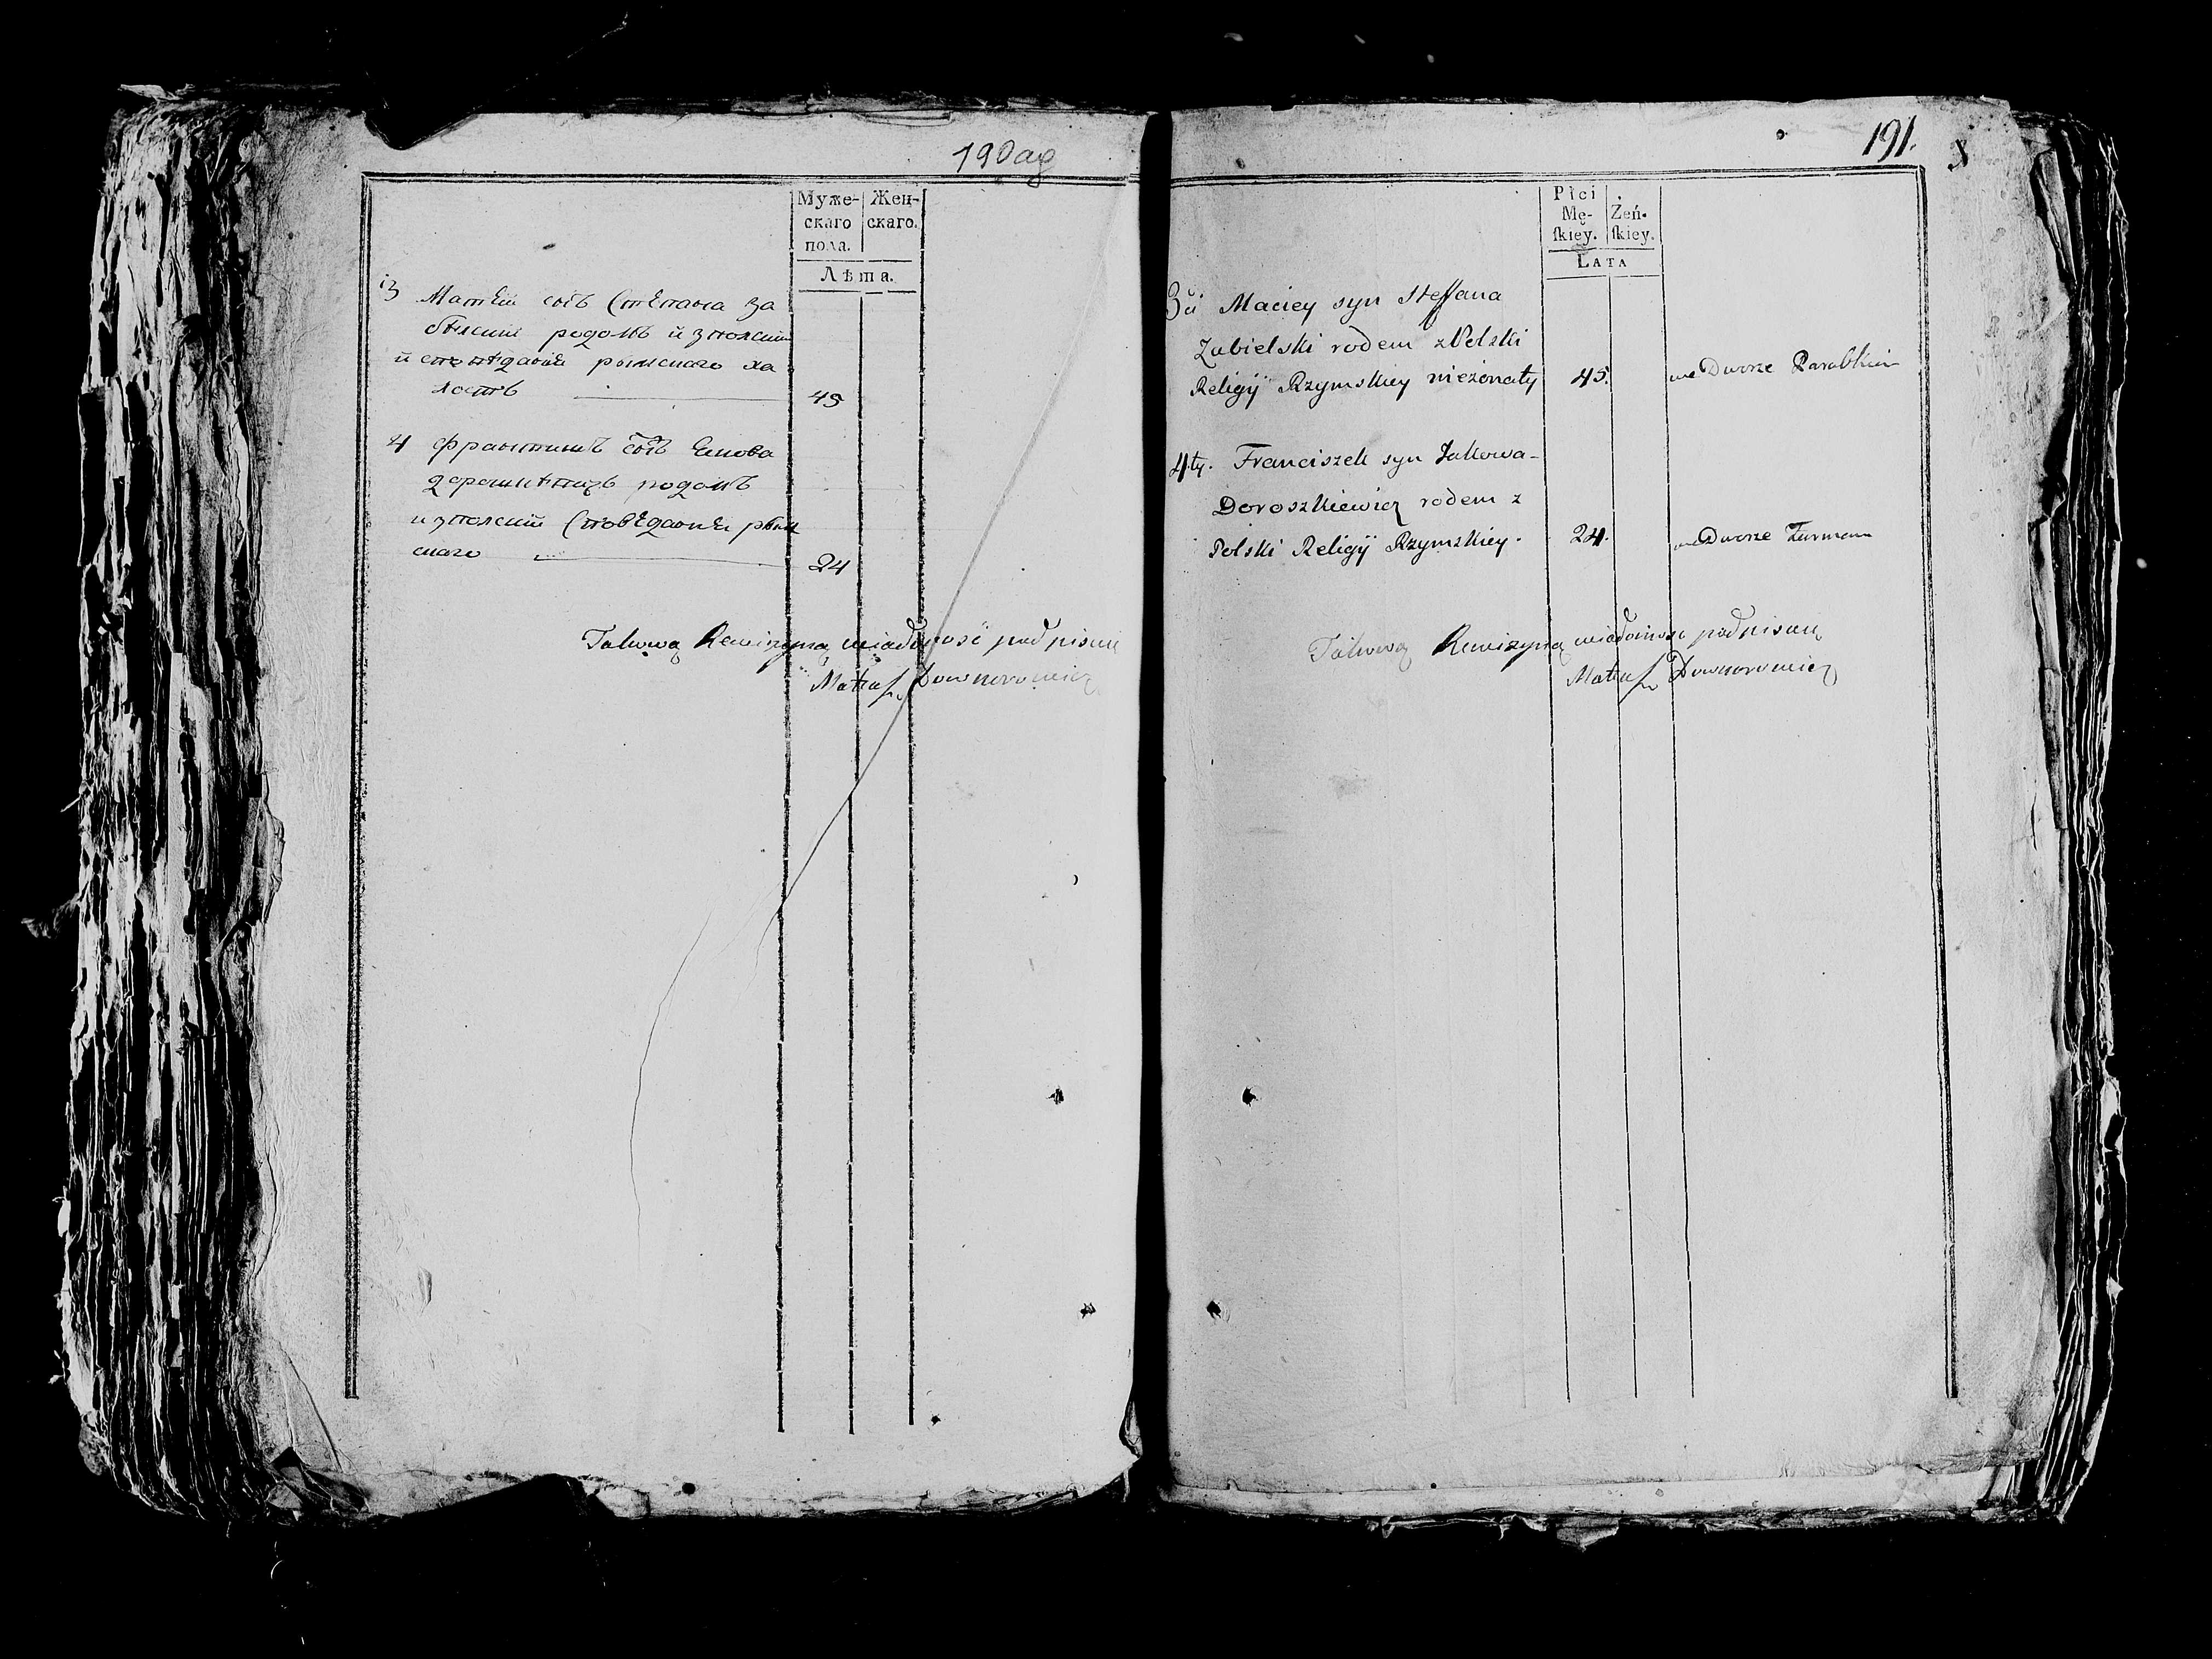 190 ag
Муже-
скаго
пола.
Жен-
скаго.
Лѣта.
3 Матей сынъ Степана За
белский родомъ изполски
исповѣдания рымскаго хо
лостъ
45
4 Францишекъ сынъ Якова
дорошкѣвичъ родомъ
изполский исповѣдания рым
скаго
24
Takową Rewizyiną wiadomość podpisuię
Matiasz Downorowicz
191.
Płci
Mę-
skiey.
Żeń-
skiey.
LATA
3ci Maciey syn Steffana
Zabielski rodem z Polski
Religij Rzymskiey nieżonaty 45. we Dworze Parobkiem
4.ty. Franciszek syn Jakowa-
Doroszkiewicz rodem z
Polski Religij Rzymskiey. 24. we Dworze Furman
Takową Rewizyiną wiadomość podpisuię
Matiasz Downorowicz